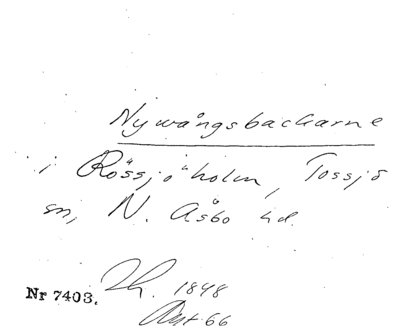 Nywångsbackarne
i Rössjöholm, Tossjö
sn, N. Åsbo hd.
1848
Nr 7403.
66